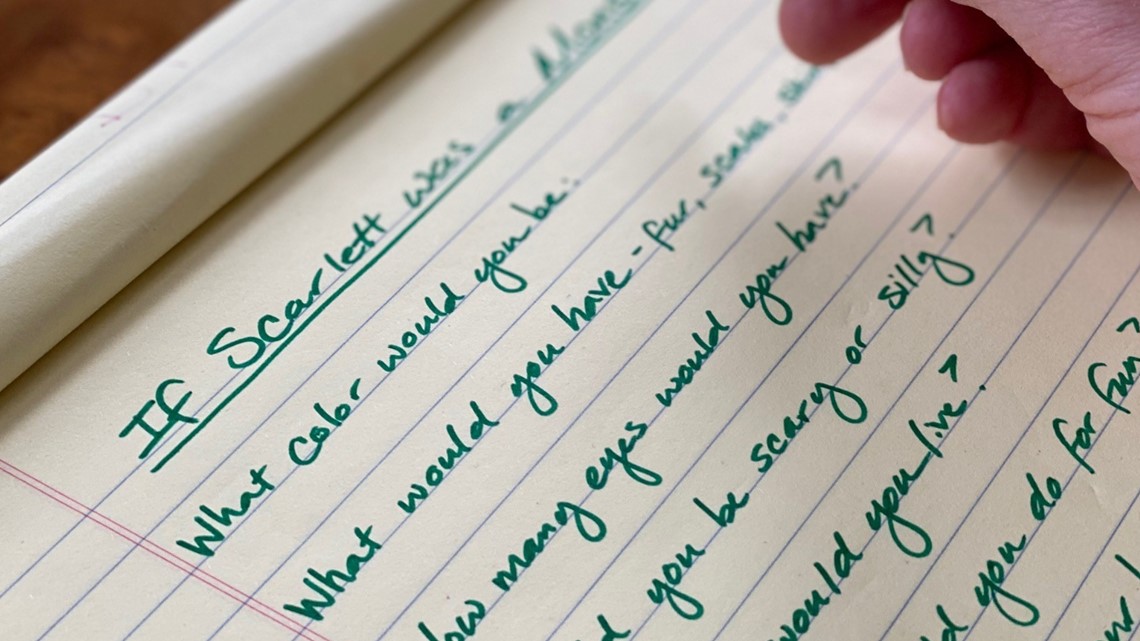 If Scarlett was a
What color would you be.
What would you have - fur, scales,
many eyes would you have?
you be scary or silly?
would you live?
you do for fun?